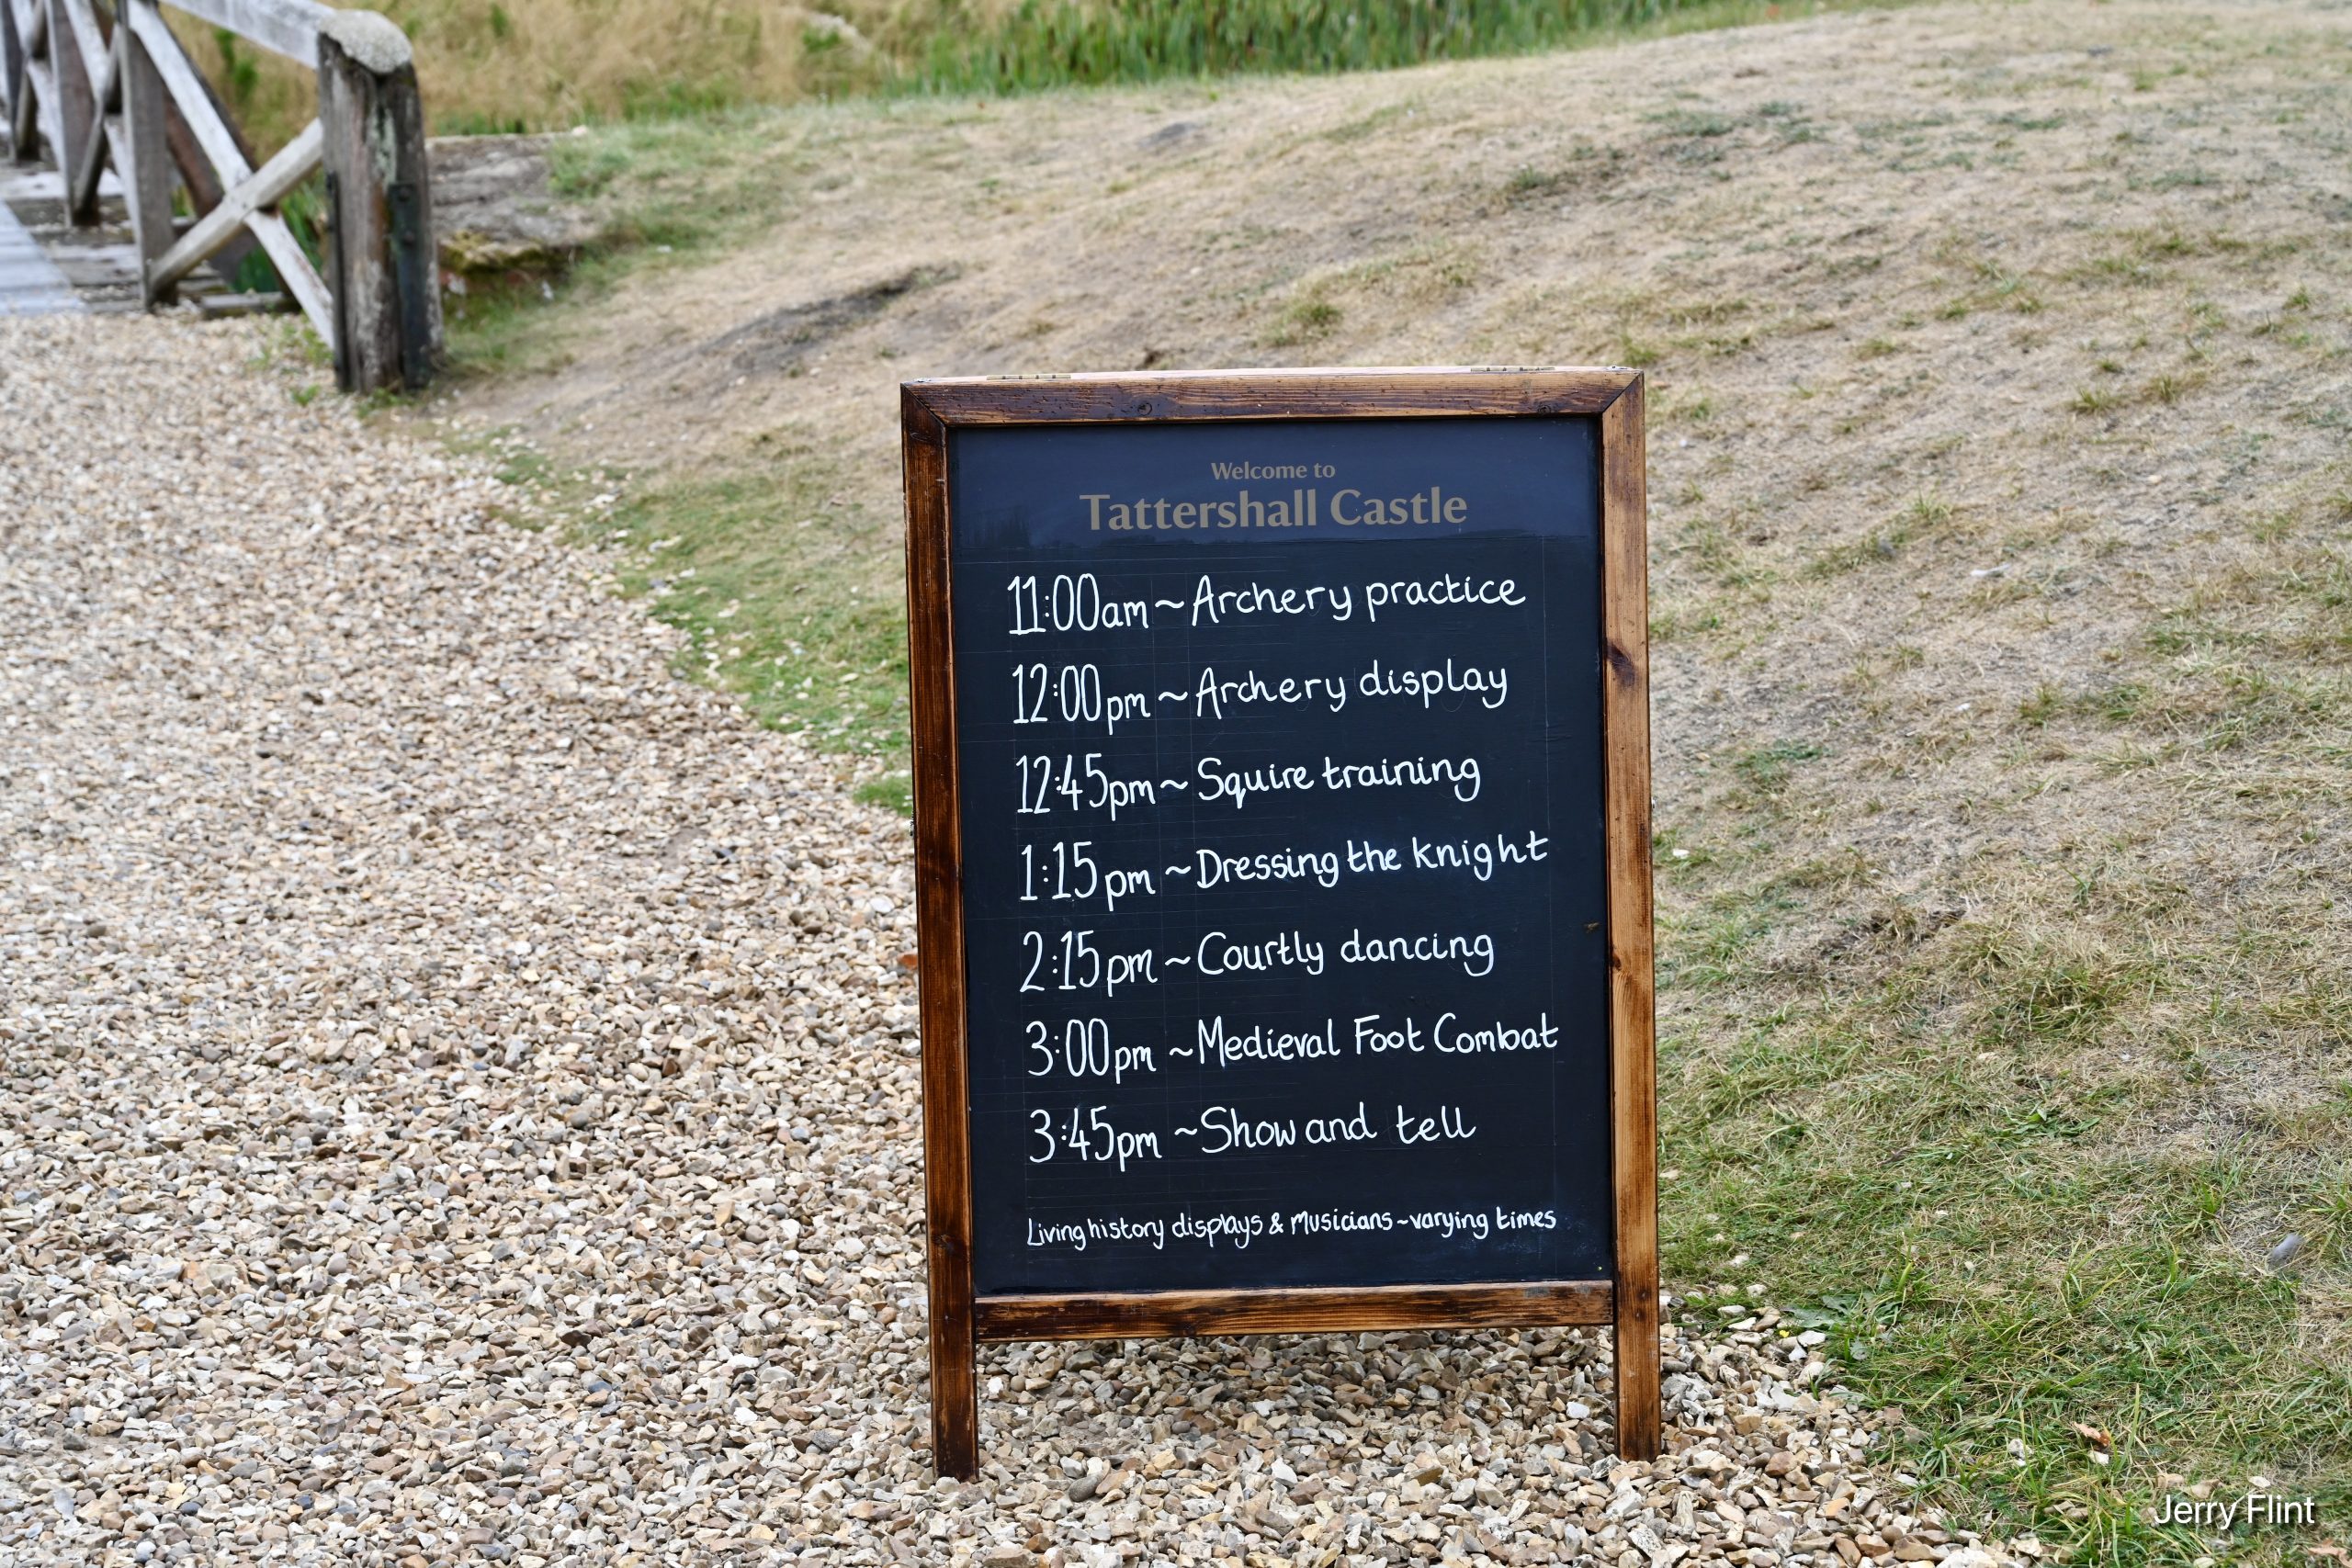 Welcome to
Tattershall Castle
11:00am ~ Archery practice
12:00pm ~ Archery display
12:45pm ~ Squire training
1:15pm ~ Dressing the knight
2:15pm ~ Courtly dancing
3:00pm ~ Medieval Foot Combat
3:45pm ~ Show and tell
Living history displays & Musicians ~ varying times
Jerry Flint